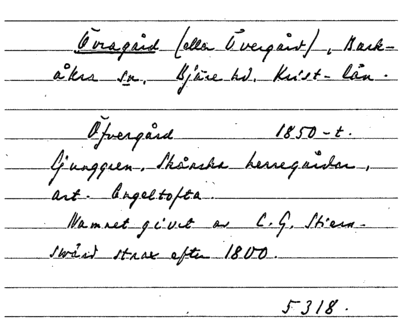 Övragård (eller Övergård), Bark-
åkra sn. Bjäre hd. Krist-län.
Öfvergård 1850-t.
Ljunggren, Skånska herregårdar,
art. Engeltofta.
Namnet givet av C. G. Stiern-
swärd strax efter 1800.
5318.